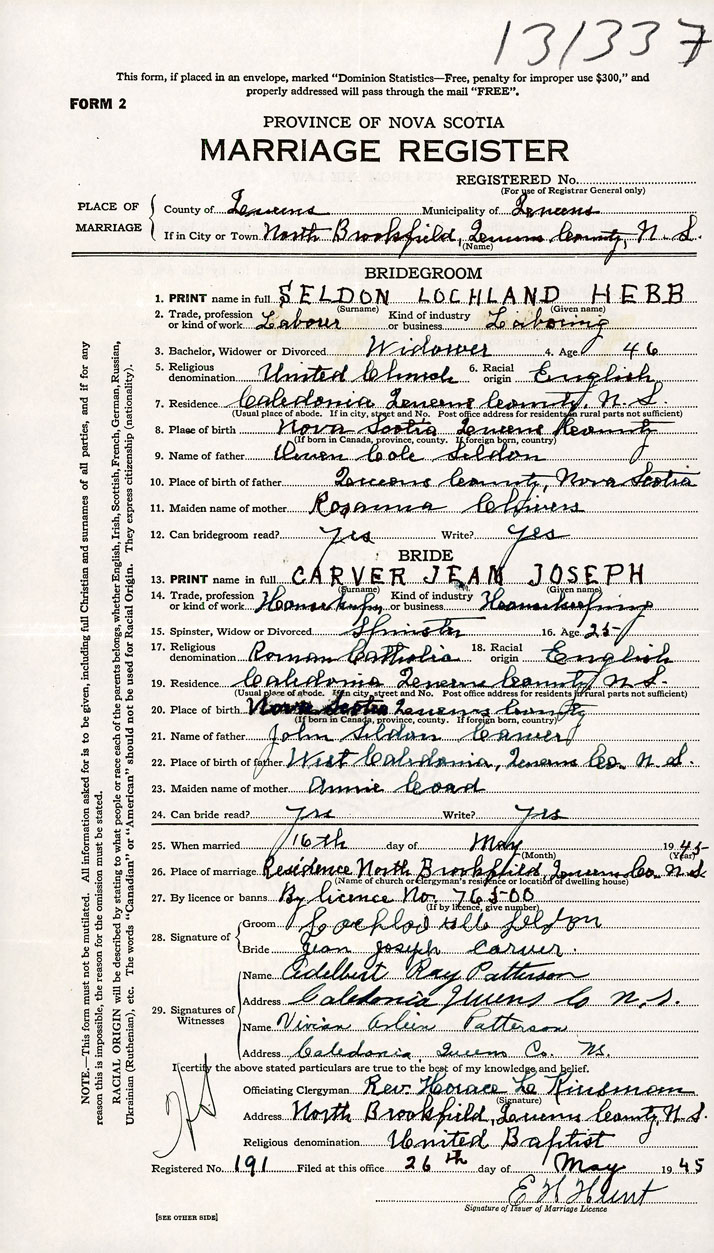 131337
This form, if placed in an envelope, marked "Dominion Statistics—Free, penalty for improper use $300," and
properly addressed will pass through the mail "FREE".
FORM 2
PROVINCE OF NOVA SCOTIA
MARRIAGE REGISTER
REGISTERED No.
(For use of Registrar General only)
PLACE OF MARRIAGE
County of Queens Municipality of Queens
If in City or Town North Brookfield, Queens County, N. S.
(Name)
BRIDEGROOM
1. PRINT name in full SELDON LOCHLAND HEBB
(Surname) (Given name)
2. Trade, profession or kind of work Labour Kind of industry or business Laboring
3. Bachelor, Widower or Divorced Widower 4. Age 46
5. Religious denomination United Church 6. Racial origin English
7. Residence Caledonia Queens County, N. S.
(Usual place of abode. If in city, street and No. Post office address for residents in rural parts not sufficient)
8. Place of birth Nova Scotia Queens County
(If born in Canada, province, county. If foreign born, country)
9. Name of father Owen Cole Seldon
10. Place of birth of father Queens County, Nova Scotia
11. Maiden name of mother Rosanna Chivers
12. Can bridegroom read? Yes Write? Yes
BRIDE
13. PRINT name in full CARVER JEAN JOSEPH
(Surname) (Given name)
14. Trade, profession or kind of work Kind of industry or business Housekeeping
15. Spinster, Widow or Divorced Spinster 16. Age 25
17. Religious denomination Roman Catholic 18. Racial origin English
19. Residence Caledonia Queens County N. S.
(Usual place of abode. If in city, street and No. Post office address for residents in rural parts not sufficient)
20. Place of birth Nova Scotia Queens County
(If born in Canada, province, county. If foreign born, country)
21. Name of father John Seldon Carver
22. Place of birth of father West Caledonia, Queens Co. N. S.
23. Maiden name of mother Annie Coad
24. Can bride read? Yes Write? Yes
25. When married 16th day of May 1945
(Month) (Year)
26. Place of marriage Residence North Brookfield, Queens Co. N. S.
(Name of church or clergyman's residence or location of dwelling house)
27. By licence or banns By licence No. 76500
(If by licence, give number)
28. Signature of
Groom Seldon
Bride Jean Joseph Carver.
29. Signatures of Witnesses
Name Adelbert Ray Patterson
Address Caledonia Queens Co N. S.
Name Vivian Patterson
Address Caledonia, Queens Co. NS.
I certify the above stated particulars are true to the best of my knowledge and belief.
Officiating Clergyman Rev. Horace L. Kinsman
(Signature)
Address North Brookfield, Queens County, N. S.
Religious denomination United Baptist
Registered No. 191 Filed at this office 26th day of May 1945
E H Hunt
Signature of Issuer of Marriage Licence
[SEE OTHER SIDE]
NOTE.—This form must not be mutilated. All information asked for is to be given, including full Christian and surnames of all parties, and if for any
reason this is impossible, the reason for the omission must be stated.
RACIAL ORIGIN will be described by stating to what people or race each of the parents belongs, whether English, Irish, Scottish, French, German, Russian,
Ukrainian (Ruthenian), etc. The words "Canadian" or "American" should not be used for Racial Origin. They express citizenship (nationality).